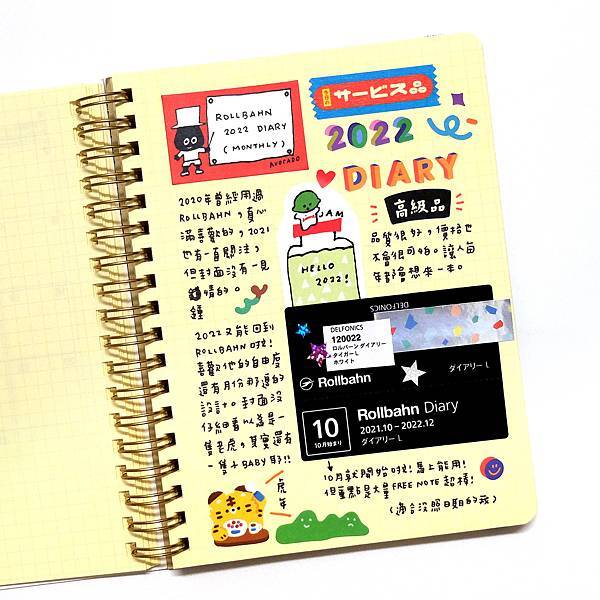 ROLLBAHN
2022 DIARY
(MONTHLY)
AVOCADO
サービス品
2022
DIARY
高級品
2020年曾經用過
ROLLBAHN，真心
滿喜歡的，2021
也有一直關注，
但封面沒有一見
鍾情的。
JAM
HELLO
2022!
品質很好，價格也
不會很可怕。讓人每
年都會想來一本。
2022又能回到
ROLLBAHN啦！
喜歡他的自由度
還有月份那邊的
設計。封面沒
仔細看以為是一
隻老虎，其實還有
一隻小BABY耶!!
DELFONICS
DELFONICS
120022
ロルバーン ダイアリー
タイガー L
ホワイト
Rollbahn
ダイアリー L
10
10月始まり
Rollbahn Diary
2021.10 – 2022.12
ダイアリー L
10月就開始啦！馬上能用！
但重點是大量FREE NOTE超棒！
(適合沒照日期的我)
虎年